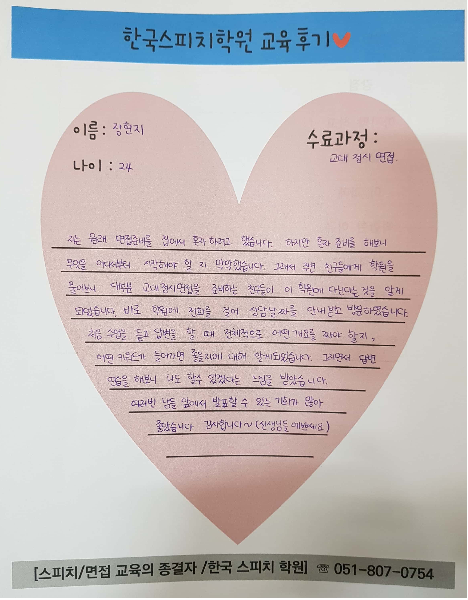 한국스피치학원 교육 후기
이름 : 장현지
수료과정 :
교대 정시 면접.
나이 : 24
저는 원래 면접준비를 집에서 혼자 하려고 했습니다. 하지만 혼자 준비를 해보니
무엇을 어디서부터 시작해야 할 지 막막했습니다. 그래서 주변 친구들에게 학원을
물어보니 대부분 교대정시면접을 준비하는 친구들이 이 학원에 다닌다는 것을 알게
되었습니다. 바로 학원에 전화를 걸어 상담날짜를 안내받고 방문하였습니다.
처음 수업을 듣고 답변을 할 때 전체적으로 어떤 개요를 짜야 할지,
어떤 키워드가 들어가면 좋을지에 대해 알게되었습니다. 그러면서 답변
연습을 해보니 나도 할수 있겠다는 느낌을 받았습니다.
여러번 남들 앞에서 발표할 수 있는 기회가 많아
좋았습니다 감사합니다~ (선생님들 예쁘세요)
[스피치/면접 교육의 종결자 /한국 스피치 학원] ☏ 051-807-0754